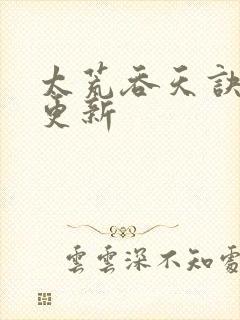 太荒吞天訣
更新
雲雲深不知處